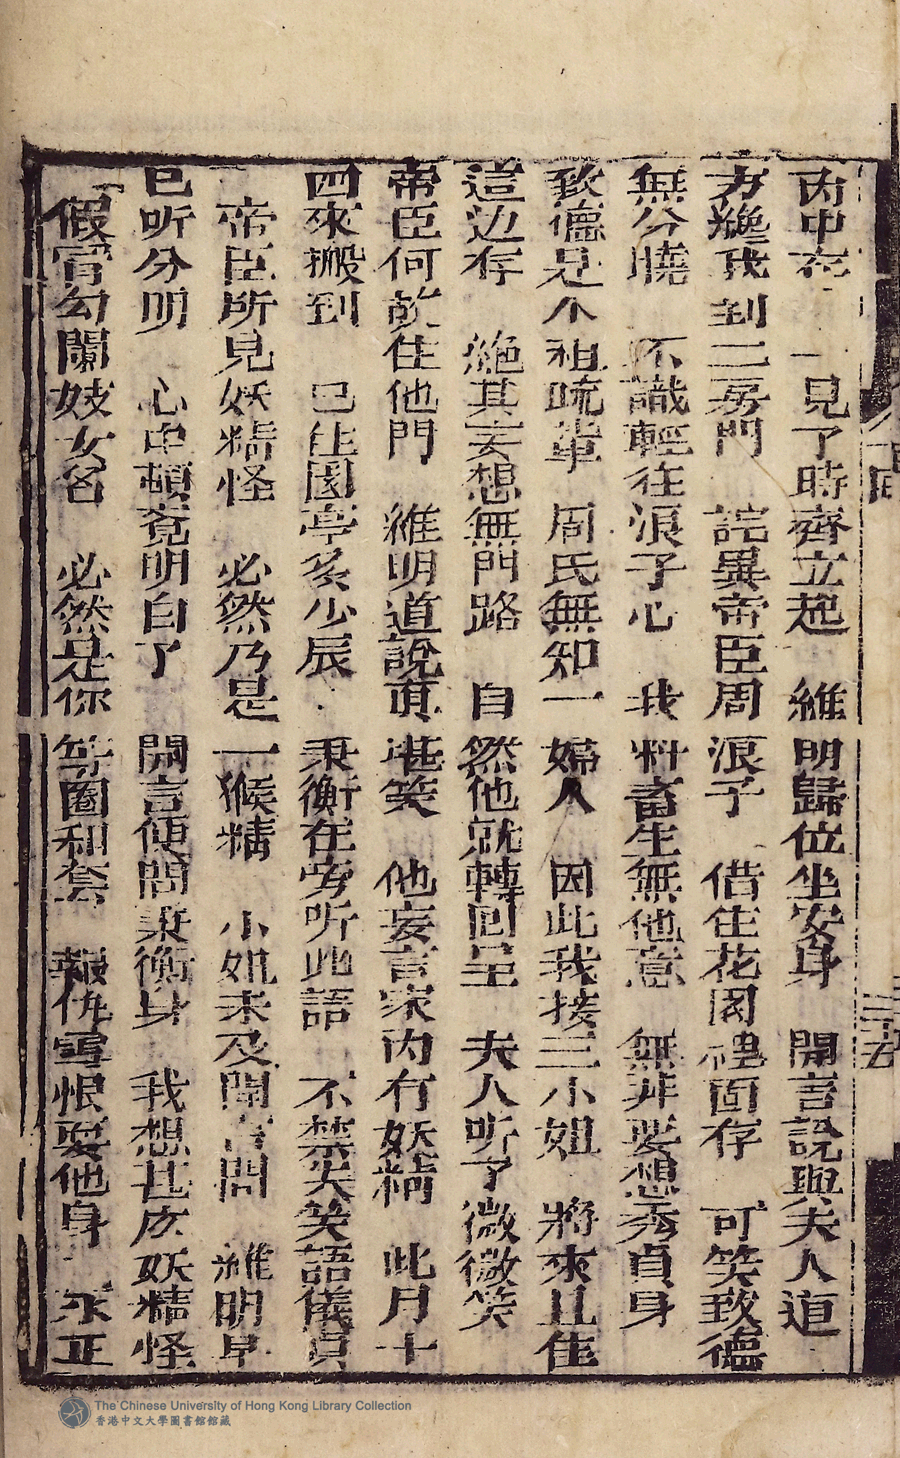 內中存 一見了時齊立起 維明歸位坐安身 開言說與夫人道
方纔我到二房門 詫異帝臣周浪子 借住花园裡面存 可笑致德
無分曉 不識輕狂浪子心 我料畜生無他意 無非要想秀貞身
致德是个粗疏輩 周氏無知一婦人 因此我接三小姐 將來且住
這边存 絕其妄想無門路 自然他就轉回呈 夫人听了微微笑
帝臣何故住他門 維明道說真堪笑 他妄言家内有妖精 此月十
四來搬到 已住園亭多少辰 秉衡在旁听此語 不禁失笑語儀貞
帝臣所見妖精怪 必然乃是一猴精 小姐未及開言問 維明早
已听分明 心中頓覓明白了 開言便問秉衡身 我想甚庅妖精怪
假冒勾闌妓女名 必然是你等圈和套 報仇雪恨耍他身 永正
三十五
The Chinese University of Hong Kong Library Collection
香港中文大學圖書館館藏